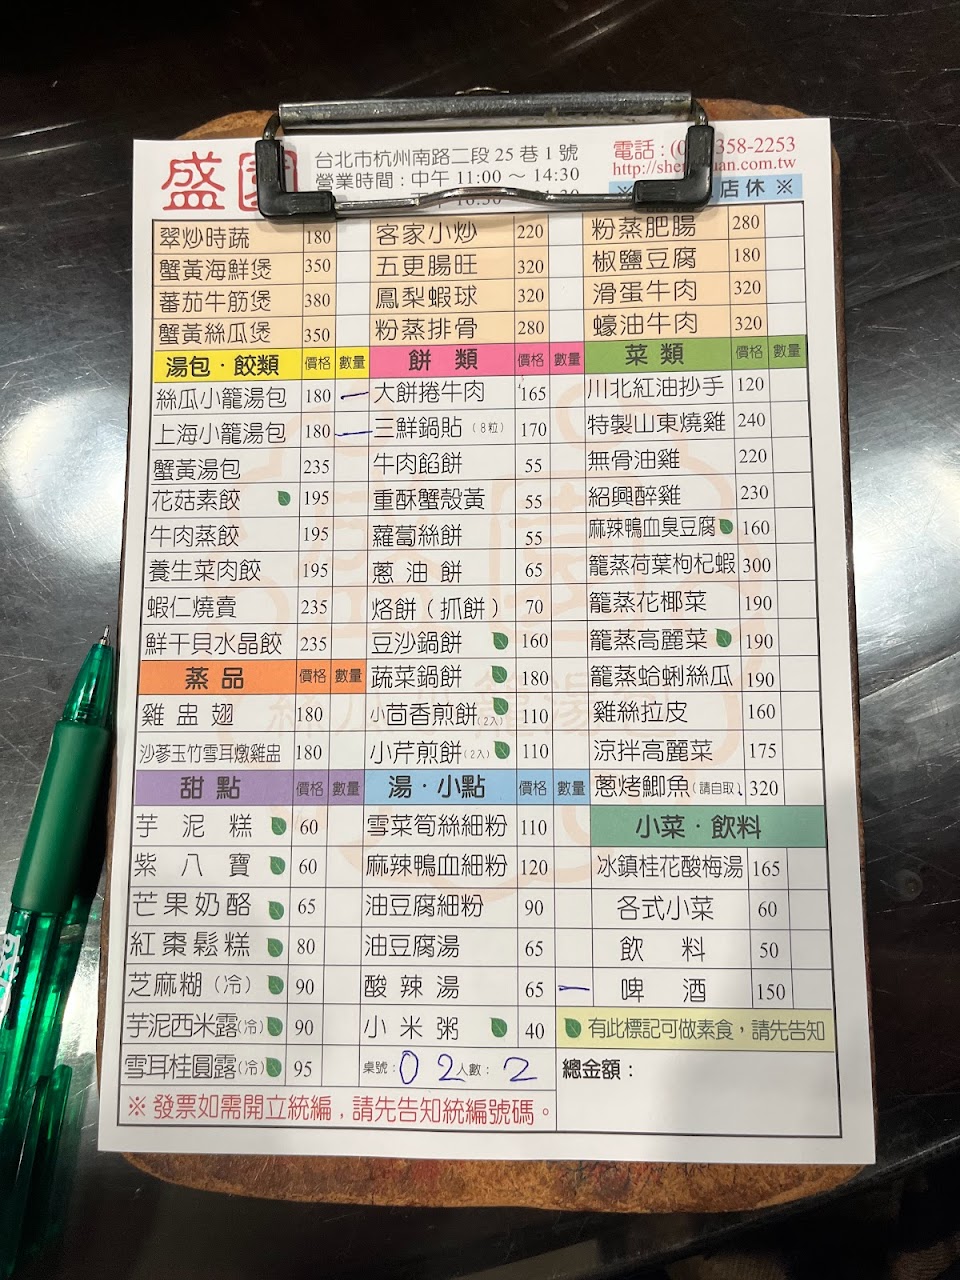 盛園
台北市杭州南路二段25巷1號
營業時間：中午11:00～14:30
電話：(0 358-2253
http://she uan.com.tw
※ 店休 ※
翠炒時蔬 180 客家小炒 220 粉蒸肥腸 280
蟹黃海鮮煲 350 五更腸旺 320 椒鹽豆腐 180
蕃茄牛筋煲 380 鳳梨蝦球 320 滑蛋牛肉 320
蟹黃絲瓜煲 350 粉蒸排骨 280 蠔油牛肉 320
湯包・餃類 價格 數量 餅類 價格 數量 菜類 價格 數量
絲瓜小籠湯包 180 一 大餅捲牛肉 165 川北紅油抄手 120
上海小籠湯包 180 一 三鮮鍋貼（8粒） 170 特製山東燒雞 240
蟹黃湯包 235 牛肉餡餅 55 無骨油雞 220
花菇素餃 195 重酥蟹殼黃 55 紹興醉雞 230
牛肉蒸餃 195 蘿蔔絲餅 55 麻辣鴨血臭豆腐 160
養生菜肉餃 195 蔥油餅 65 籠蒸荷葉枸杞蝦 300
蝦仁燒賣 235 烙餅（抓餅） 70 籠蒸花椰菜 190
鮮干貝水晶餃 235 豆沙鍋餅 160 籠蒸高麗菜 190
蒸品 價格 數量 蔬菜鍋餅 180 籠蒸蛤蜊絲瓜 190
雞盅翅 180 小茴香煎餅（2入） 110 雞絲拉皮 160
沙蔘玉竹雪耳燉雞盅 180 小芹煎餅（2入） 110 涼拌高麗菜 175
甜點 價格 數量 湯・小點 價格 數量 蔥烤鯽魚（請自取） 320
芋泥糕 60 雪菜筍絲細粉 110 小菜・飲料
紫八寶 60 麻辣鴨血細粉 120 冰鎮桂花酸梅湯 165
芒果奶酪 65 油豆腐細粉 90 各式小菜 60
紅棗鬆糕 80 油豆腐湯 65 飲料 50
芝麻糊（冷） 90 酸辣湯 65 一 啤酒 150
芋泥西米露（冷） 90 小米粥 40 有此標記可做素食，請先告知
雪耳桂圓露（冷） 95 桌號：02 人數：2 總金額：
※ 發票如需開立統編，請先告知統編號碼。